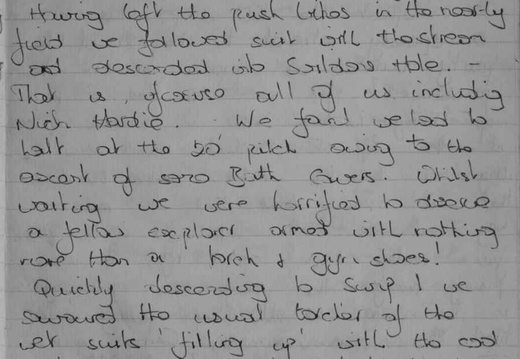 Having left the push bikes in the nearby
field we followed suit with the stream
and descended into Swildons Hole. -
That is, of course all of us including
Nich. Hardie. We found we had to
halt at the 20' pitch owing to the
ascent of some Bath Cavers. Whilst
waiting we were horrified to observe
a fellow explorer armed with nothing
more than a torch & gym shoes!
Quickly descending to Sump 1 we
savoured the usual torture of the
wet suits 'filling up' with the cool